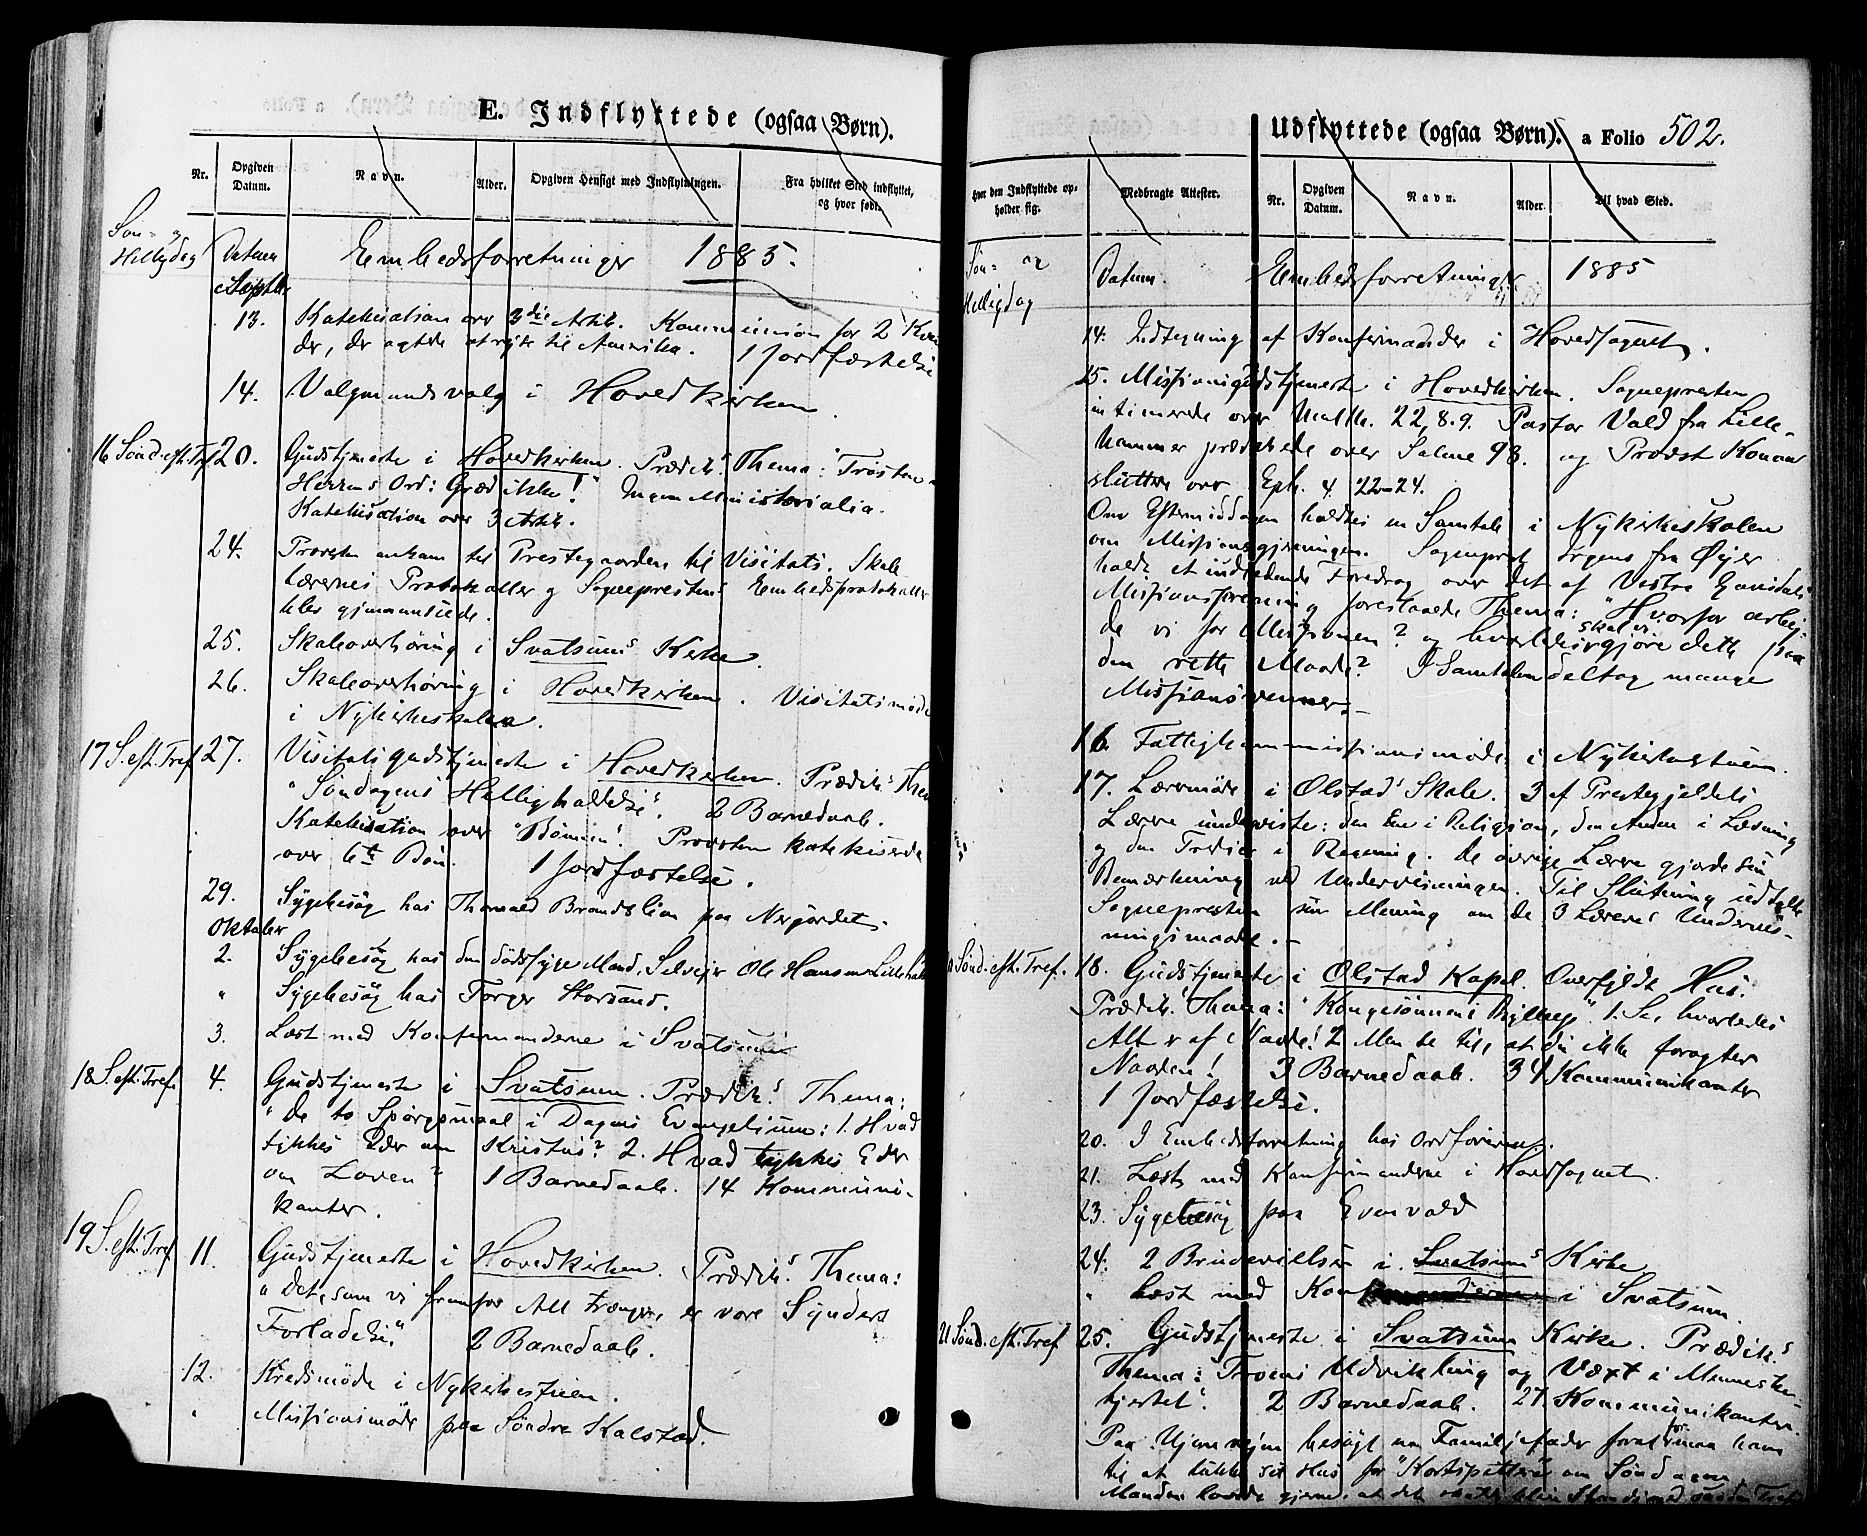 E. Indflyttede (ogsaa Børn).
Nr. Opgiven Datum. Navn. Alder. Opgiven Hensigt med Indflytningen. Fra hvilket Sted indflyttet, og hvor født.
Søn- og Helligdag Datum Embedsforretninger 1885.
Septbr.
13. Katekisation over 3die Artik. Kommunion for 2 Kvin
der, der agtede at rejse til Amerika. 1 Jordfæstelse
14. Valgmandsvalg i Hovedkirken.
16 Sönd. eft. Tref. 20. Gudstjeneste i Hovedkirken. Prædik. Thema: "Trösten i
Herrens Ord: Græd ikke!" Ingen Ministerialia.
Katekisation over 3 Artik.
24. Provsten ankom til Prestegaarden til Visitats. Skole
lærernes Protokoller og Sogneprestens Embedsprotokoller
blev gjennemsede.
25. Skoleoverhöring i Svatsums Kirke.
26. Skoleoverhöring i Hovedkirken. Visitatsmöde
i Nykirkeskolen.
17 S. eft. Tref. 27. Visitatsgudstjeneste i Hovedkirken. Prædik. Thema
"Söndagens Helligholdelse". 2 Barnedaab.
Katekisation over "Bönnen". Provsten katekiserede
over 6te Bön. 1 Jordfæstelse.
29. Sygebesög hos Thorvald Brandslien paa Nerjordet.
Oktober
2. Sygebesög hos den dödssyge Mand, Selvejer Ole Hansen Lillehale
" Sygebesög hos Torger Storsand.
3. Læst med Konfirmanderne i Svatsum
18 S. eft. Tref. 4. Gudstjeneste i Svatsum. Prædik. Thema:
"De to Spörgsmaal i Dagens Evangelium: 1. Hvad
tykkes Eder om Kristus? 2. Hvad tykkes Eder
om Loven" 1 Barnedaab. 14 Kommuni-
kanter.
19 S. eft. Tref. 11. Gudstjeneste i Hovedkirken. Prædik. Thema:
"Det, som vi fremfor Alt trænge, er vore Synders
Forladelse." 2 Barnedaab.
12. Kredsmöde i Nykirkestuen.
" Missionsmöde paa Söndre Kalstad.
Udflyttede (ogsaa Børn). a Folio 502.
Hvor den Indflyttede opholder sig. Medbragte Attester. Nr. Opgiven Datum. Navn. Alder. Til hvad Sted.
Søn- og Helligdag Datum. Embedsforretninger 1885
14. Indtegning af Konfirmander i Hovedsognet.
15. Missionsgudstjeneste i Hovedkirken. Sognepresten
intimerede over Matth. 22, 8.9. Pastor Vald fra Lille-
hammer prædikede over Salme 98. og Provst Konow
sluttede over Eph. 4. 22-24.
Om Eftermiddagen holdtes en Samtale i Nykirkeskolen
om Missionsgjerningen. Sogneprest Irgens fra Øjer
holdt et indledende Foredrag over det af Vestre Gausdals
Missionsforening foreslaaede Thema: "Hvorfor arbej-
de vi for Missionen? og hvorledes skal vi gjøre dette paa
den rette Maade? I Samtalen deltog mange
Missionsvenner.
16. Fattigkommissionsmöde i Nykirkestuen.
17. Læremöde i Olstad Skole. 3 af Prestegjeldets
Lærere underviste: den Ene i Religion, den Anden i Læsning
og den Tredie i Regning. De övrige Lærere gjorde sin
Bemærkning ved Undervisningen. Til Slutning udtalte
Sognepresten sin Mening om de 3 Læreres Undervis-
ningsmaade.
Sönd. eft. Tref. 18. Gudstjeneste i Olstad Kapel. Overfyldt Hus.
Prædik. Thema: "Kongesönnens Bryllup". 1. Se, hvorledes
Alt er af Naade! 2 Men se til, at du ikke foragter
Naaden! 3 Barnedaab. 34 Kommunikanter
1 Jordfæstelse.
20. I Embedsforretning hos Ordföreren.
21. Læst med Konfirmanderne i Hovedsognet.
23. Sygebesög paa Evavold
24. 2 Brudevielser i Svatsums Kirke
" Læst med Konfirmanderne i Svatsum.
21 Sönd. eft. Tref 25. Gudstjeneste i Svatsum Kirke. Prædik.
Thema: Troens Udvikling og Væxt i Menneske-
hjertet. 2 Barnedaab. 27. Kommunikanter.
Paa Hjemvejen besögt en Familjefader for at formaa ham
til at lukke sit Hus for "Kortspillere" om Söndagen.
Manden lovede gjerne, at det